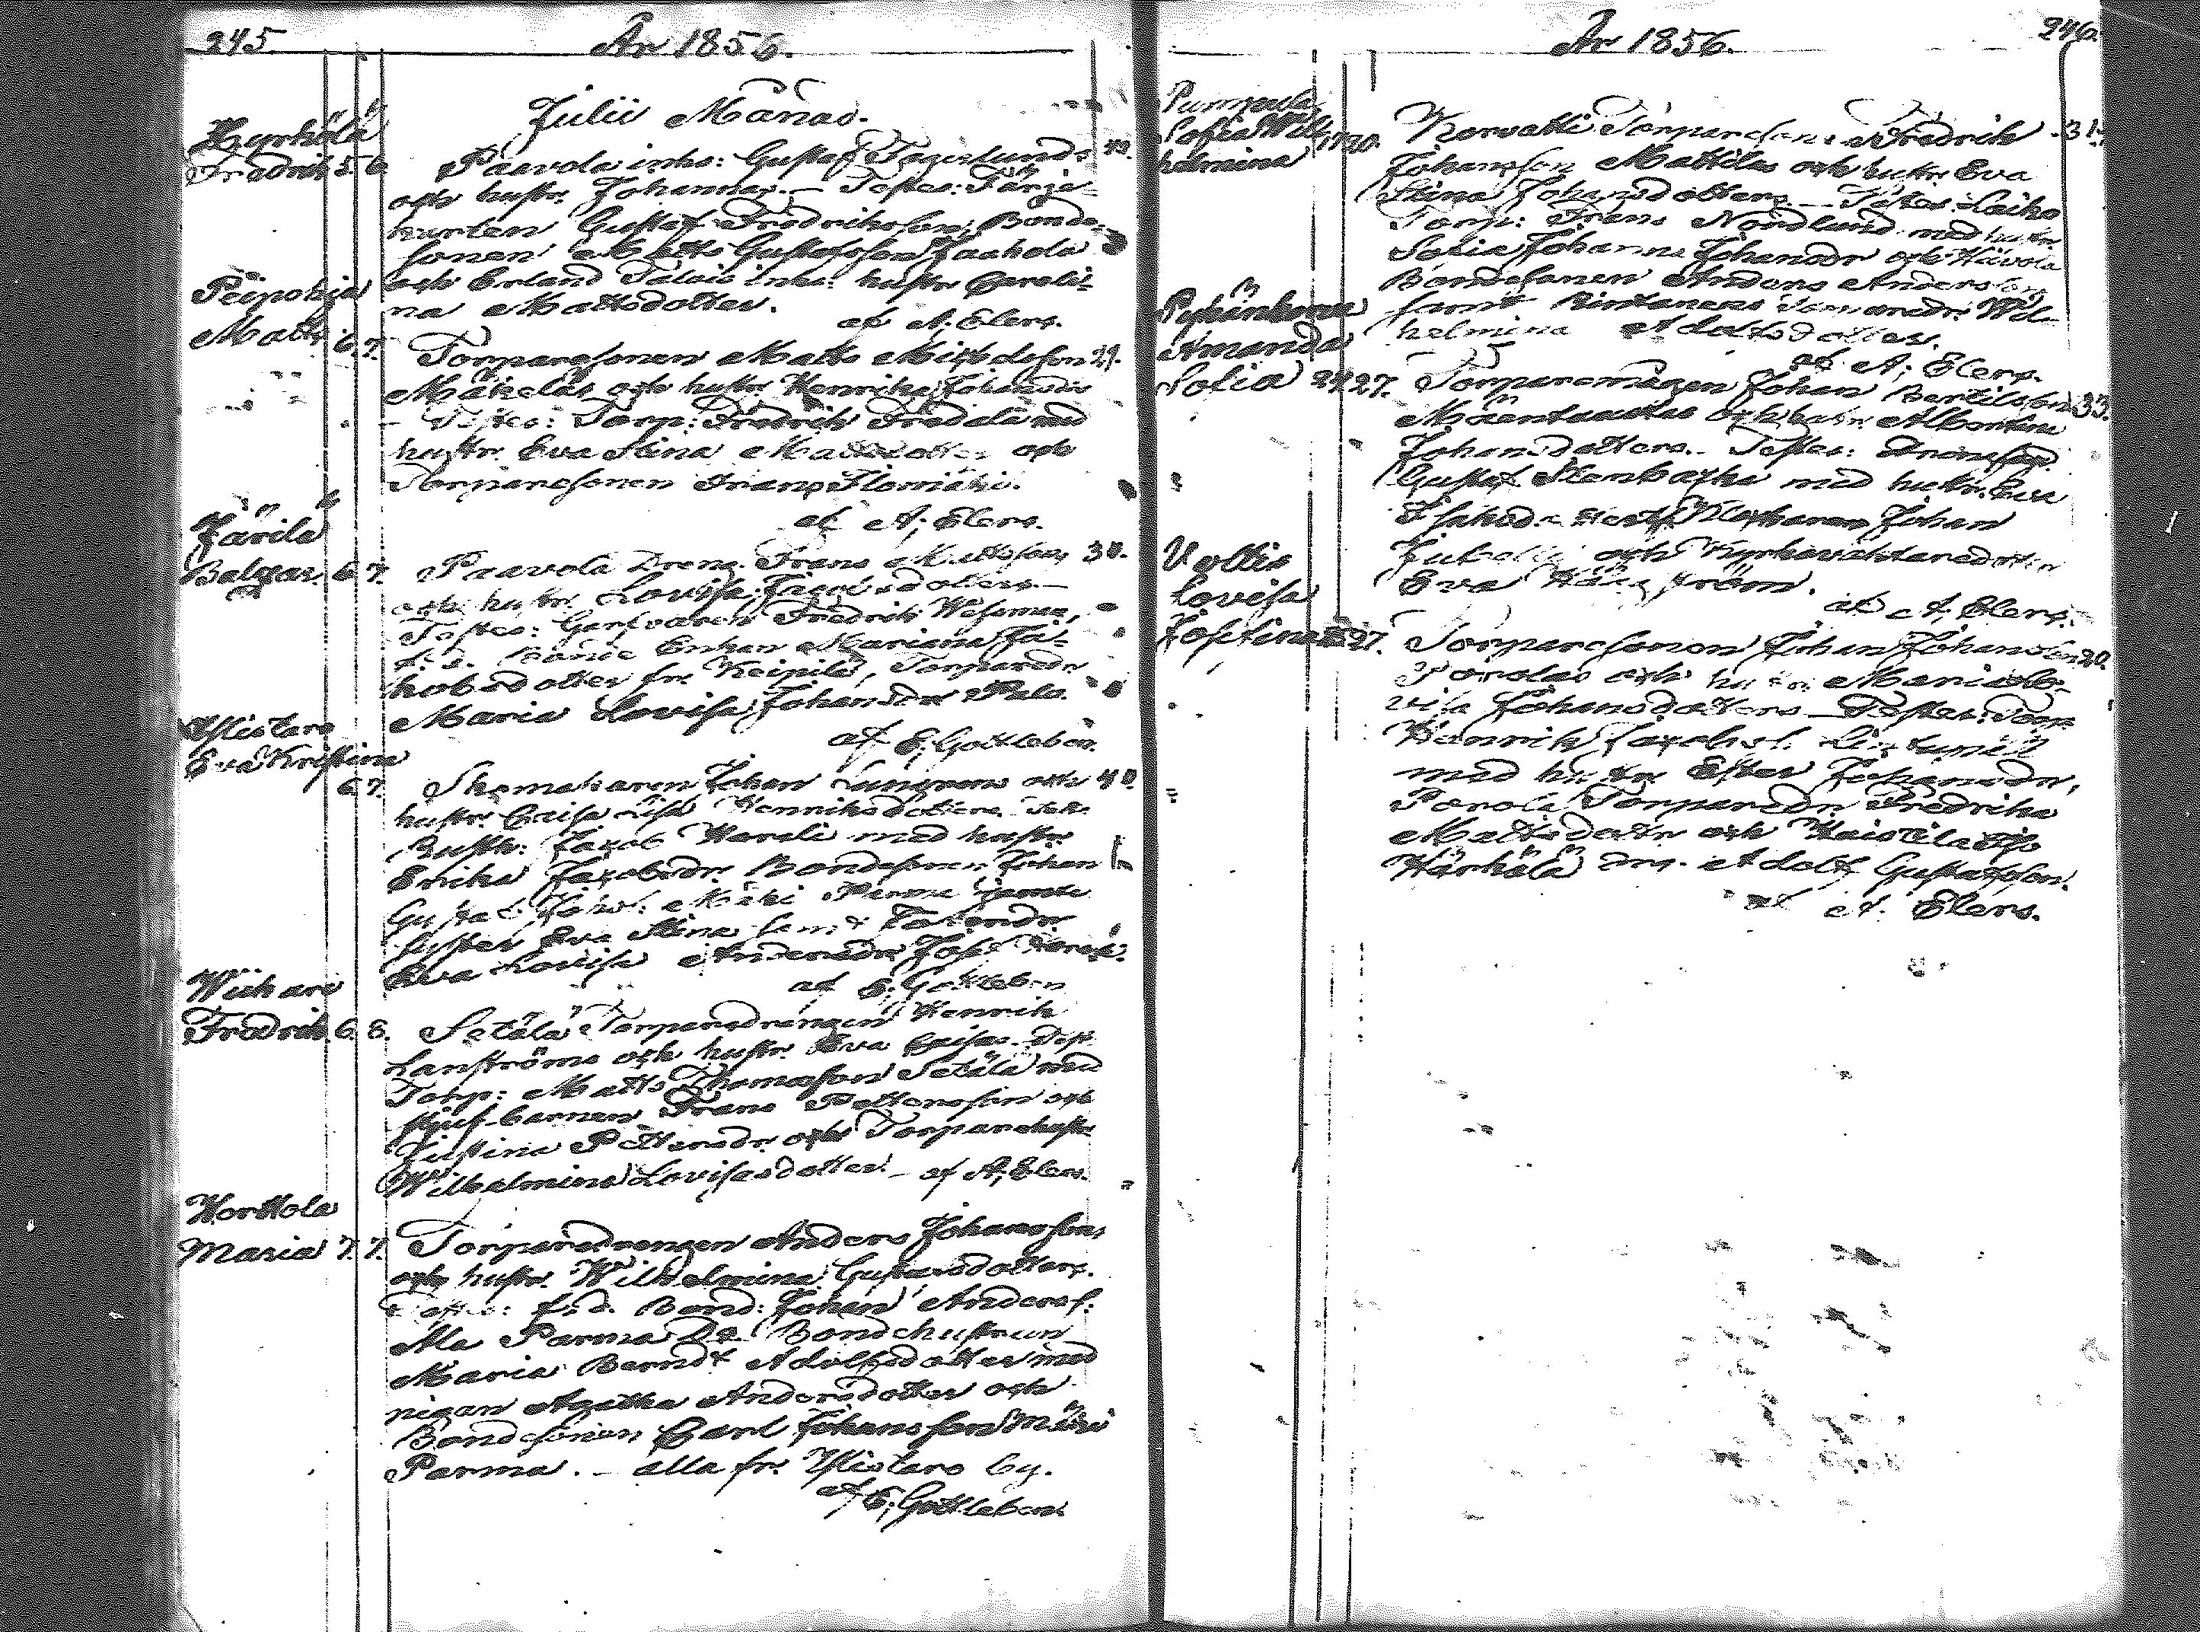 245.
År 1856.
Julii Månad.
Hyrkölä
Fredrik 5. 6.
Paavola inhs: Gustaf Fagerlunds 40.
och hustr. Johannas. — Testes: Färje-
karlen Gustaf Fredriksson, Bonde-
sonen Matts Gustafsson Jaakola
och Erland Talois inhs: hustr Caroli-
na Mattsdotter.
af A; Elers.
Peipohja
Matts 6. 7.
Torparesonen Matts Michelsson 29.
Mäkeläs och hustr. Henrika Johansdrs
— Testes: Torp: Fredrik Fredala med
hustr. Eva Stina Mattsdotter och
Torparesonen Frans Ilomäki.
af A; Elers.
Järilä
Balzar. 6. 7.
Paavola Dreng. Frans Mattsson 30.
och hustr. Lovisa dotters —
Testes: Garfvaren Fredrik Weseman,
f. d. Bonde Enkan Mariana Ja-
kobsdotter fr. Keipilä, Torparedr
Maria Lovisa Johansdr Palo.
af E; Gottleben.
Ylistaro
Eva Kristina
6. 7.
Skomakaren Johan Lungrens och 40.
hustr. Caisa Lisa Henriksdotters. Test.
Rusth: Jacob Hareli med hustr.
Erika Jacobsdr. Bondesonen Johan
Gustaf Johs: Mäki Parma jemte
syster Eva Stina samt
Eva Lovisa Andersdr Josef
af E; Gottleben
Wichari
Fredrik. 6. 8.
Setälä Torparedrängen Henrik
Lanströms och hustr. Eva Caisas. Test.
Torp: Matts Thomasson Setälä med
stjuf-barnen Frans Pettersson och
Justina Pettersdr. och Torparehustr.
Wilhelmina Lovisasdotter. — af A; Elers.
Horttola
Maria 7. 7.
Torparedrengen Anders Johansson
och hustr. Wilhelmina Gustavsdotters.
Testes: f. d. Bond: Johan Andersf:
Ala Parma Do Bondehustrun
Maria Berndt Adolfsdotter med
pigan Agatha Andersdotter och
Bondesonen Carl Johansson Mäki
Parma. — alla fr. Ylistaro by.
af E; Gottleben.
År 1856.
246.
Sofia Wil-
helmina 17. 20.
Korvatti Torparesonen Fredrik 31.
Johansson Mattilas och hustr. Eva
Stina Johansdotters — Testes: Laiho
Torp: Frans Nordlund med hustr.
Sofia Johanna Johansdr och Hiivola
Bondesonen Anders Andersson
samt Torparedr. Wil-
helmina Adolfsdotter.
af A; Elers.
Amanda
Sofia 24. 27.
Torparemågen Johan Bertilsson 33.
Mäentaustas och hustr. Albertina
Johansdotters. — Testes:
Gustaf Stenbacka med hustr. Eva
Johan
och Kyrkovaktaredotter
Eva
af A; Elers.
Uollis
Lovisa
Josefina 27.
Torparesonen Johan Johansson 20.
Porolas och hustr. Maria Lo-
visa Johansdotters — Testes: Torp.
Henrik Jacobsf:
med hustr Ester Johansdr,
Porola Torparedr. Fredrika
Mattsdotter och
Härkälä drg. Adolf Gustafsson.
af A; Elers.